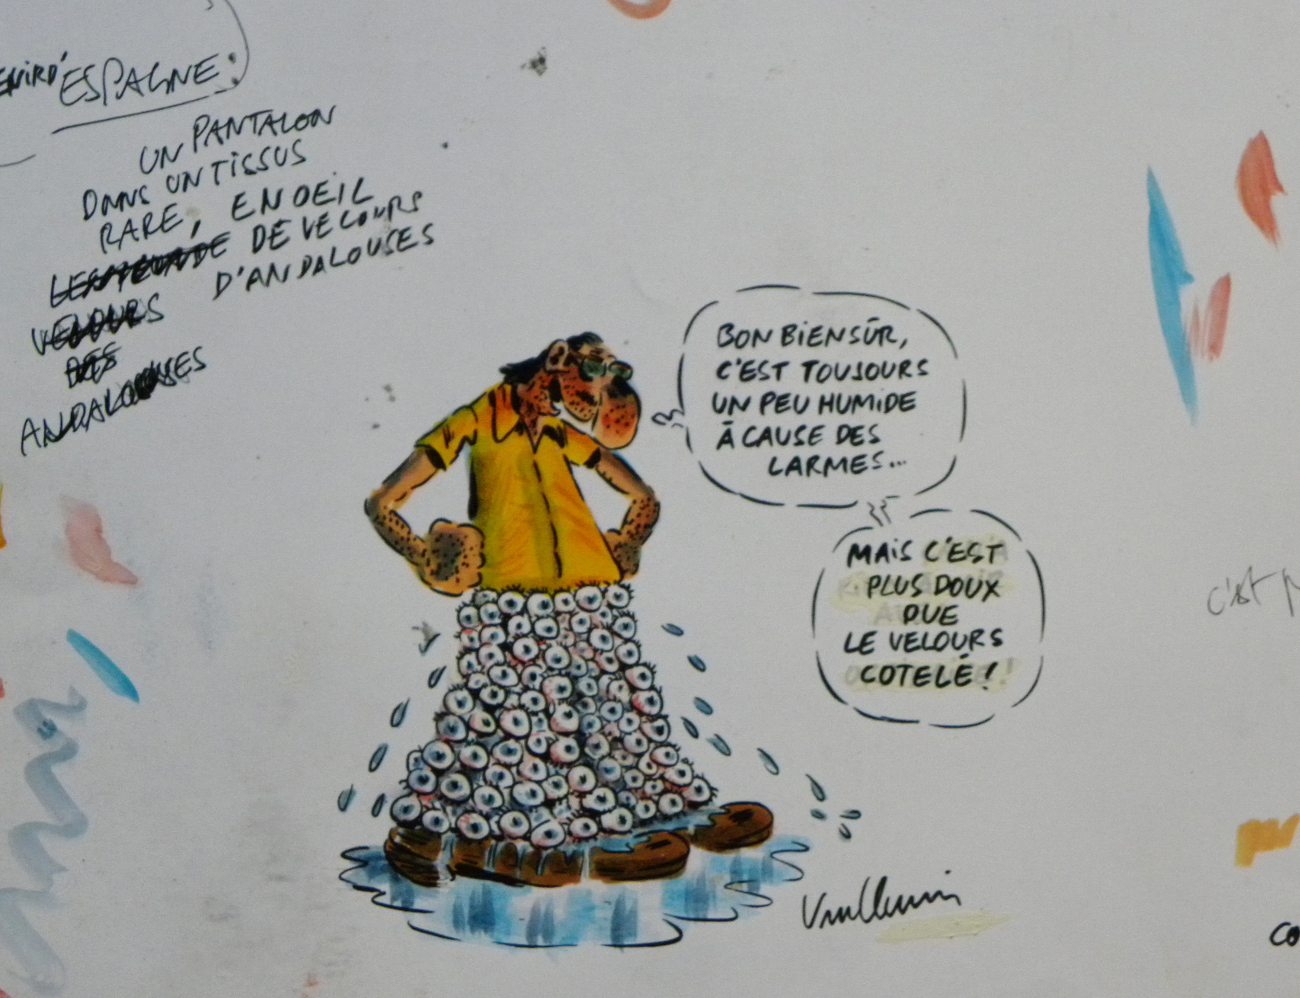 ESPAGNE:
UN PANTALON
DANS UN TISSUS
RARE, EN OEIL
DE VELOURS
D'ANDALOUSES
VELOURS
DES
ANDALOUSES
BON BIEN SÛR,
C'EST TOUJOURS
UN PEU HUMIDE
À CAUSE DES
LARMES...
MAIS C'EST
PLUS DOUX
QUE
LE VELOURS
COTELÉ !
c'est
Vuillemin
co